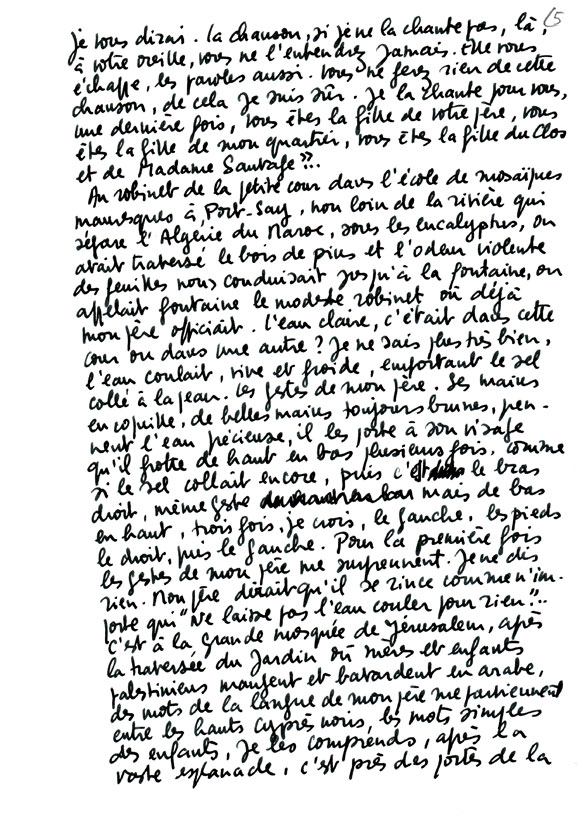 15
je vous dirai. La chanson, si je ne la chante pas, là,
à votre oreille, vous ne l'entendrez jamais. Elle vous
échappe, les paroles aussi. Vous ne ferez rien de cette
chanson, de cela je suis sûr. Je la chante pour vous,
une dernière fois, vous êtes la fille de votre père, vous
êtes la fille de mon quartier, vous êtes la fille du Clos
et de Madame Sauvage"...
Au robinet de la petite cour dans l'école de mosaïques
mauresques à Port-Say, non loin de la rivière qui
sépare l'Algérie du Maroc, sous les eucalyptus, on
avait traversé le bois de pins et l'odeur violente
des feuilles nous conduisait jusqu'à la fontaine, on
appelait fontaine le modeste robinet où déjà
mon père officiait. L'eau claire, c'était dans cette
cour ou dans une autre? Je ne sais plus très bien,
l'eau coulait, vive et froide, emportant le sel
collé à la peau. Les gestes de mon père. Ses mains
en coquille, de belles mains toujours brunes, pren-
nent l'eau précieuse, il les porte à son visage
qu'il frotte de haut en bas plusieurs fois, comme
si le sel collait encore, puis c'est le bras
droit, même geste mais de bas
en haut, trois fois, je crois, le gauche, les pieds
le droit, puis le gauche. Pour la première fois
les gestes de mon père me surprennent. Je ne dis
rien. Mon père dirait qu'il se rince comme n'im-
porte qui "Ne laisse pas l'eau couler pour rien"...
C'est à la grande mosquée de Jérusalem, après
la traversée du Jardin où mères et enfants
palestiniens mangent et bavardent en arabe,
des mots de la langue de mon père me parviennent
entre les hauts cyprès noirs, les mots simples
des enfants, je les comprends, après la
vaste esplanade, c'est près des portes de la